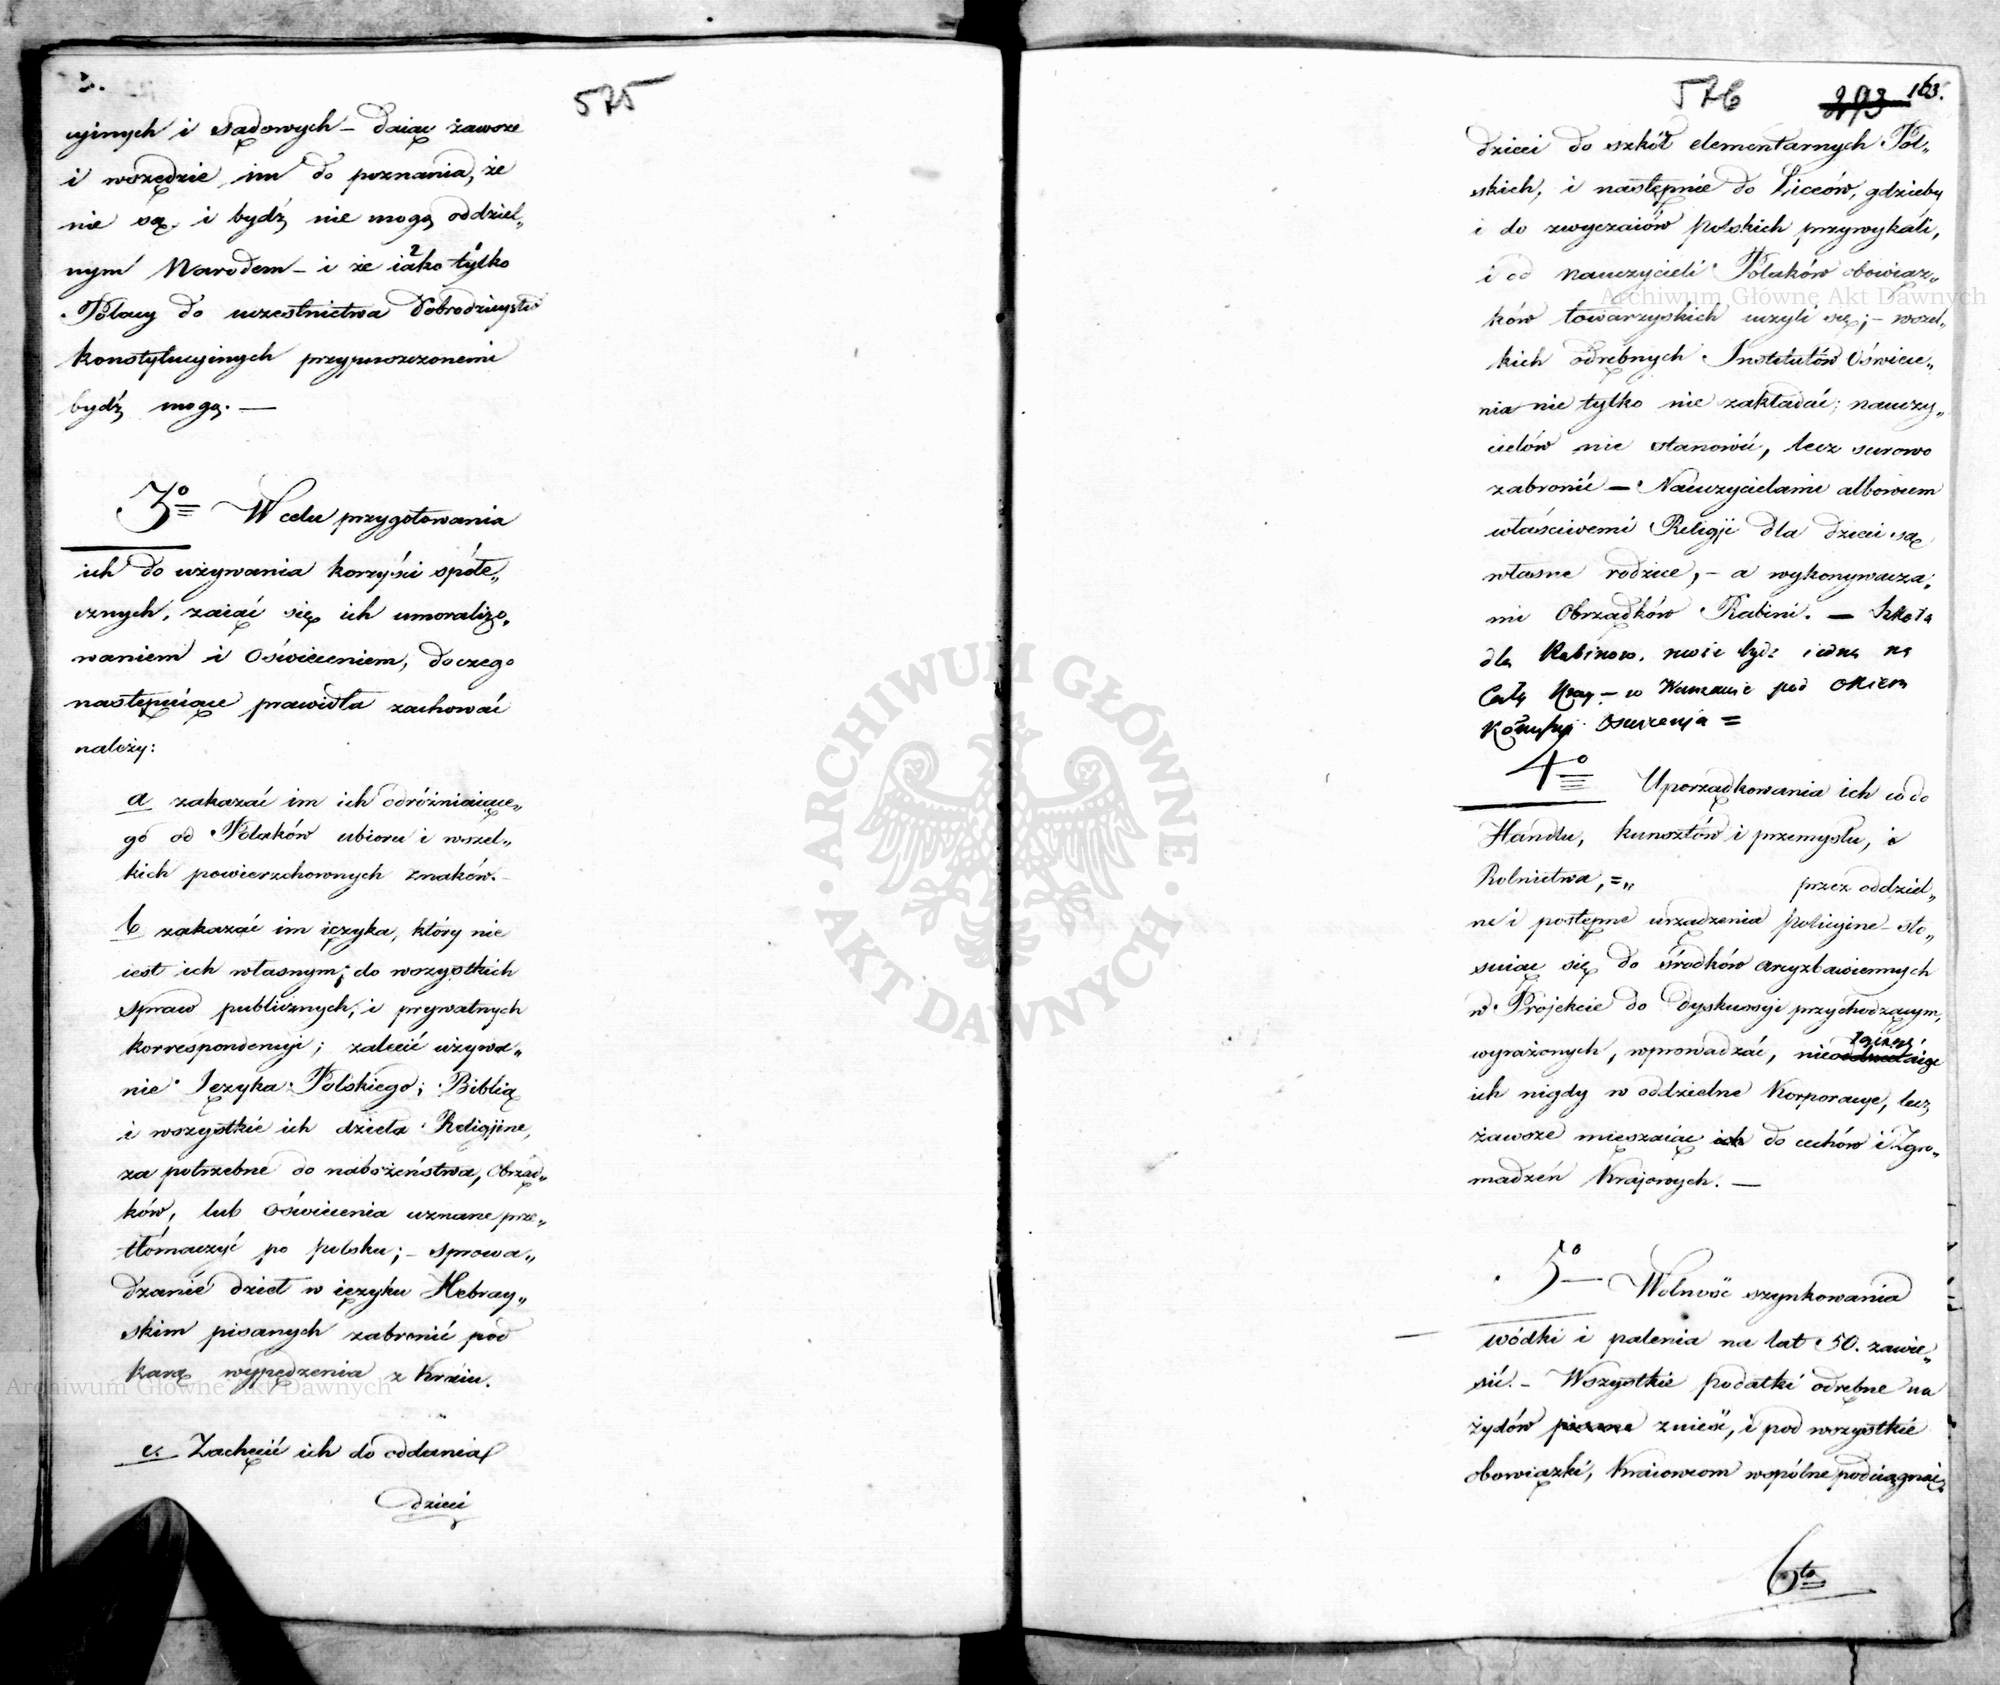 575
cyinych i sądowych – daiąc zawsze
i wszędzie im do poznania, że
nie są i bydź nie mogą oddziel„
nym Narodem – i że iako tylko
Polacy do uczestnictwa Dobrodzieystw
konstytucyinych przypuszczonemi
bydź mogą. —
3o W celu przygotowania
ich do używania korzyści społe„
cznych, zaiąć się ich umoralizo„
waniem i Oświeceniem, do czego
następuiące prawidła zachować
należy:
a zakazać im ich odróżniaiące„
go od Polaków ubioru i wszel„
kich powierzchownych znaków. –
b zakazać im ięzyka, który nie
iest ich własnym; do wszystkich
spraw publicznych, i prywatnych
korrespondencyi; zalecić używa„
nie Języka Polskiego; Biblią
i wszystkie ich dzieła Religijne,
za potrzebne do nabożeństwa, Obrząd„
ków, lub Oświecenia uznane prze„
tłómaczyć po polsku; – sprowa„
dzanie dzieł w ięzyku Hebray„
skim pisanych zabronić pod
karą wypędzenia z Kraiu.
c. Zachęcić ich do oddania
dzieci
576 293 163.
dzieci do szkół elementarnych Pol„
skich, i następnie do Liceów, gdzieby
i do zwyczaiów polskich przywykali,
i od nauczycieli Polaków obowiąz„
ków towarzyskich uczyli się; – wszel„
kich odrębnych Instytutów Oświece„
nia nie tylko nie zakładać; nauczy„
cielów nie stanowić, lecz surowo
zabronić — Nauczycielami albowiem
właściwemi Religji dla dzieci są
własne rodzice, – a wykonywacza„
mi Obrządków Rabini. — Szkoła
dla Rabinow. może bydz iedna na
Cały Kray – w Warszawie pod Okiem
Kommyssyi Oswiecenia =
4o Uporządkowania ich co do
Handlu, kunsztów i przemysłu, i
Rolnictwa, =„ przez oddziel„
ne i postępne urządzenia policyine – sto„
suiąc się do środków arcyzbawiennych
w Projekcie do dyskussyi przychodzącym,
wyrażonych, wprowadzać, nie
łącząc
ich nigdy w oddzielne Korporacye, lecz
zawsze mieszaiąc ich do cechów i Zgro„
madzeń Krajowych. —
5o Wolność szynkowania
wódki i palenia na lat 50. zawie„
sić. – Wszystkie podatki odrębne na
żydów znieść, i pod wszystkie
obowiązki, Kraiowcom wspólne podciągnąć.
6to
ARCHIWUM GŁÓWNE · AKT DAWNYCH ·
Archiwum Główne Akt Dawnych
Archiwum Główne Akt Dawnych